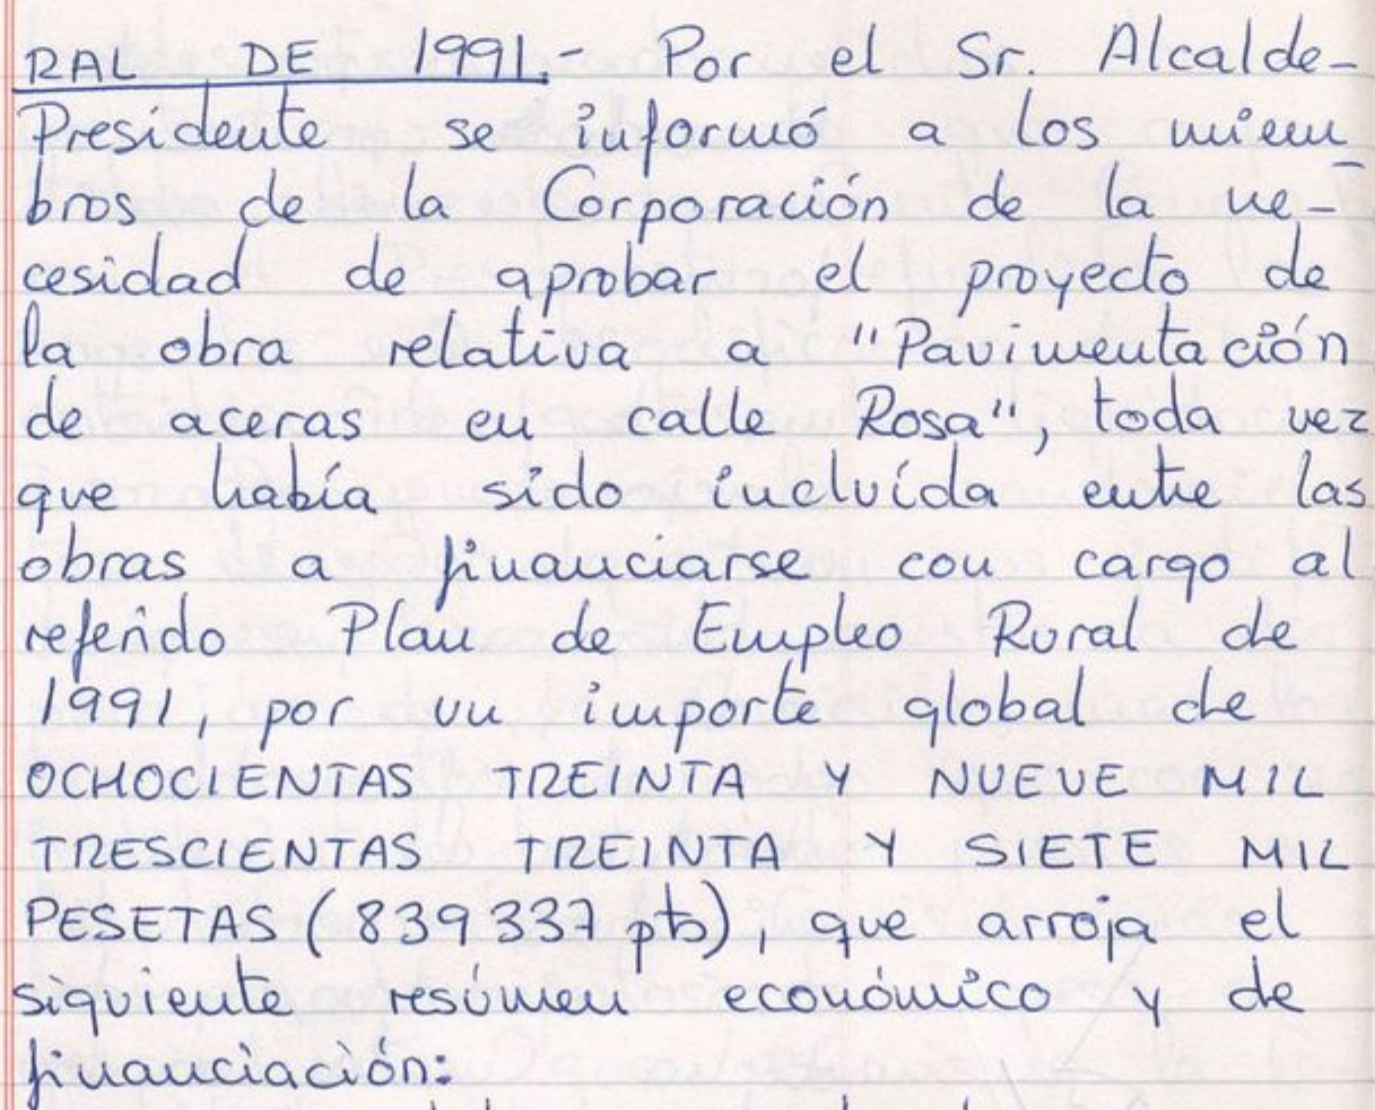 RAL DE 1991.- Por el Sr. Alcalde-
Presidente se informó a los miem-
bros de la Corporación de la ne-
cesidad de aprobar el proyecto de
la obra relativa a "Pavimentación
de aceras en calle Rosa", toda vez
que había sido incluída entre las
obras a financiarse con cargo al
referido Plan de Empleo Rural de
1991, por un importe global de
OCHOCIENTAS TREINTA Y NUEVE MIL
TRESCIENTAS TREINTA Y SIETE MIL
PESETAS (839337 pts), que arroja el
siguiente resúmen económico y de
financiación: